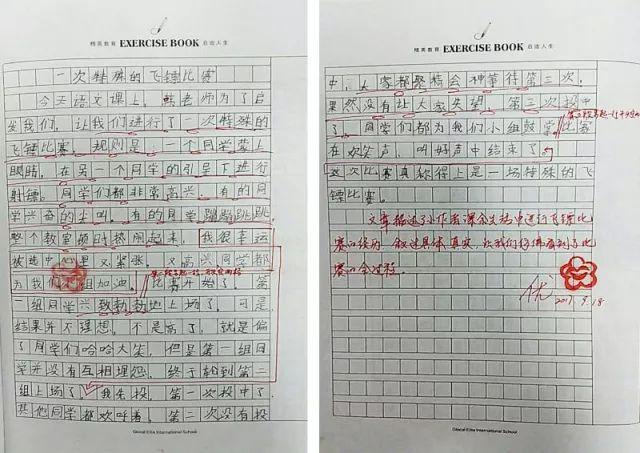 精英教育 EXERCISE BOOK 启迪人生
一次特殊的飞镖比赛
今天语文课上，熊老师为了启
发我们，让我们进行了一次特殊的
飞镖比赛。规则是：一个同学蒙上
眼睛，在另一个同学的引导下进行
射镖。同学们都非常高兴，有的同
学兴奋的尖叫，有的同学蹦蹦跳跳，
整个教室顿时热闹起来，我很幸运
被选中，心里又紧张，又高兴，同学都
为我们小组加油。比赛开始了，第
一组同学兴致勃勃地上场了，可是
结果并不理想，不是高了，就是偏
了，同学们哈哈大笑，但是第一组同
学并没有互相埋怨，终于轮到第二
组上场了，我先投，第一次投中了，
其他同学都欢呼着，第二次没有投
Glocal Elite International School
精英教育 EXERCISE BOOK 启迪人生
中，大家都聚精会神等待第三次，
果然没有让大家失望，第三次投中
了，同学们都为我们小组鼓掌，比赛
在欢笑声、叫好声中结束了。
这次比赛真称得上是一场特殊的飞
镖比赛。
文章描述了小作者课余生活中进行飞镖比
赛的经历，叙述具体、真实，让我们仿佛看到了比
赛的全过程。
优
2017.9.18
Glocal Elite International School